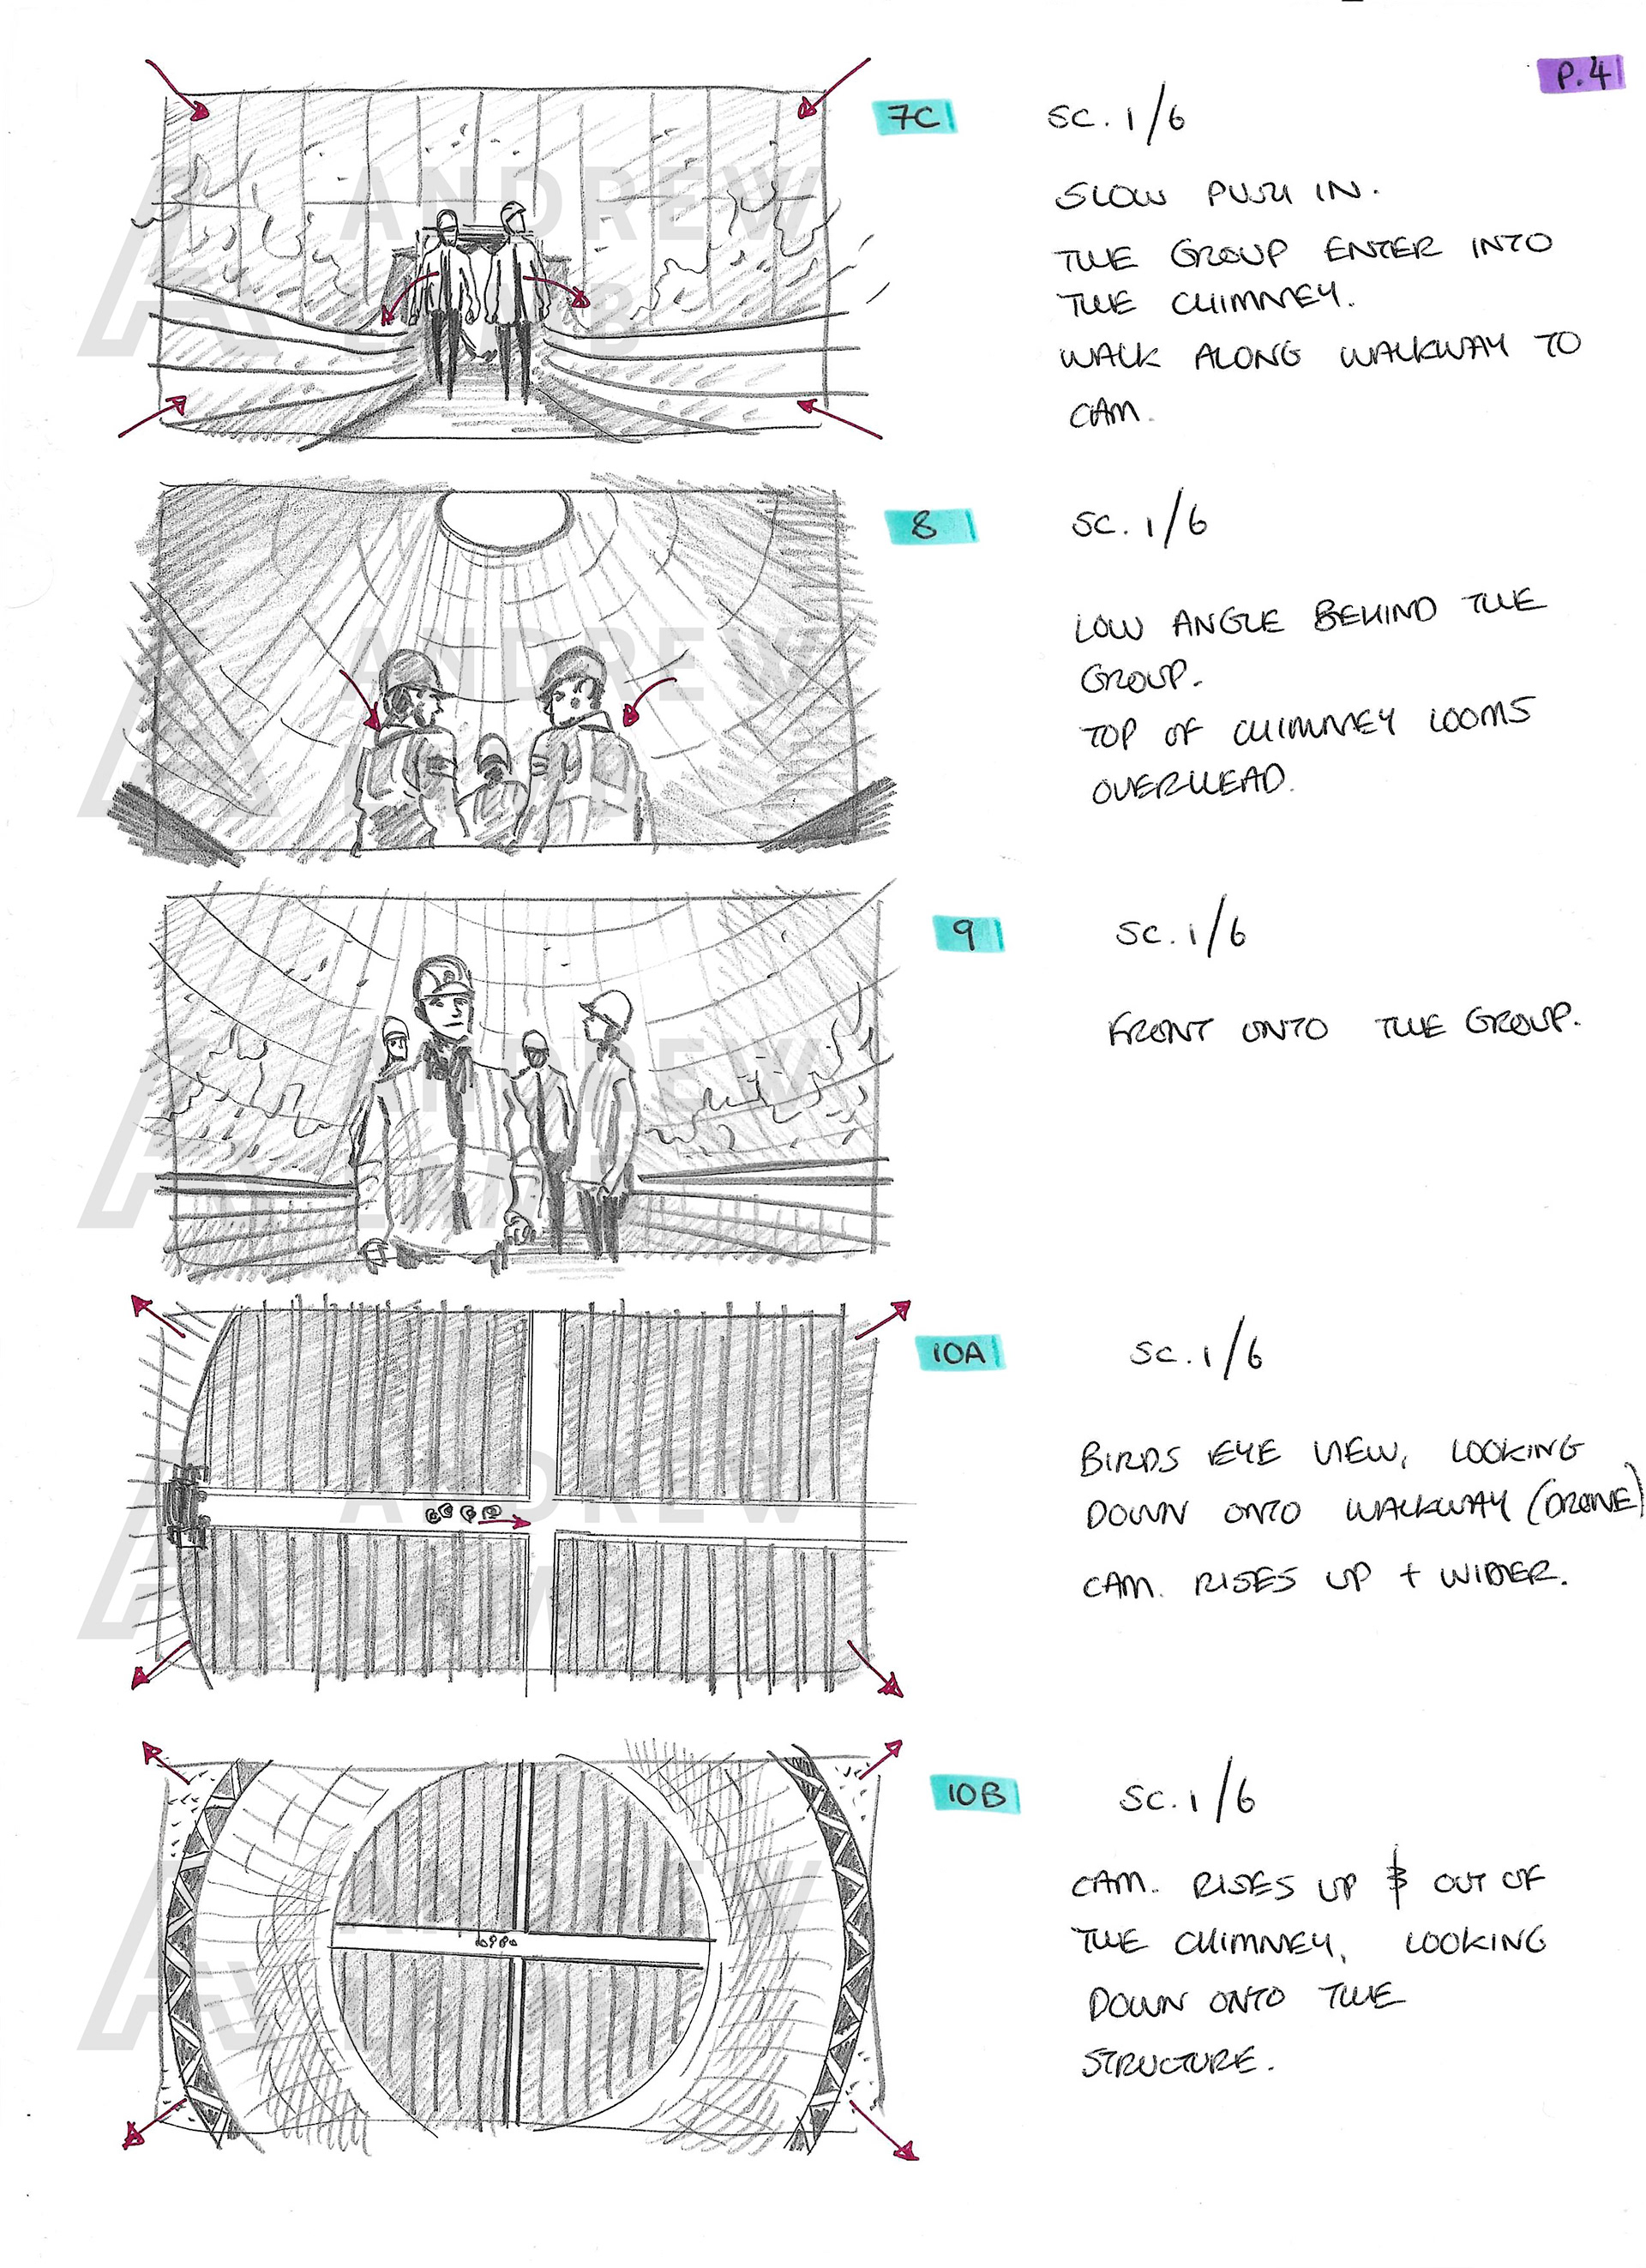 P.4
7C
SC. 1/6
SLOW PUSH IN.
THE GROUP ENTER INTO
THE CHIMNEY.
WALK ALONG WALKWAY TO
CAM.
ANDREW
LAMB
8
SC. 1/6
LOW ANGLE BEHIND THE
GROUP.
TOP OF CHIMNEY LOOMS
OVERHEAD.
ANDREW
LAMB
9
SC. 1/6
FRONT ONTO THE GROUP.
ANDREW
LAMB
10A
SC. 1/6
BIRDS EYE VIEW, LOOKING
DOWN ONTO WALKWAY (DRONE)
CAM. RISES UP + WIDER.
ANDREW
LAMB
10B
SC. 1/6
CAM. RISES UP & OUT OF
THE CHIMNEY, LOOKING
DOWN ONTO THE
STRUCTURE.
ANDREW
LAMB